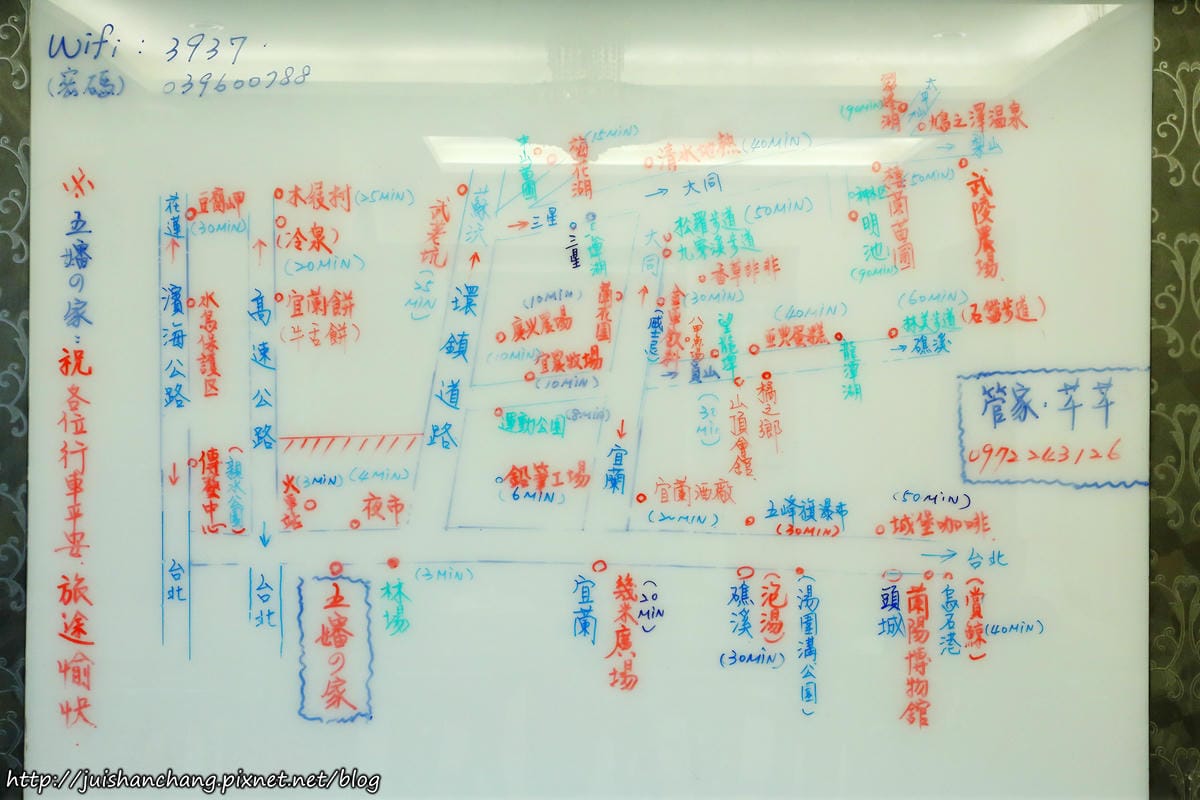 Wifi : 3937
(密碼) 039600788
※五嬸の家：祝各位行車平安．旅途愉快．
花蓮
豆腐岬
(30MIN)
濱海公路
水鳥保護区
傳藝中心
(親水公園)
台北
木屐村 (25MIN)
(冷泉)
(20MIN)
高速公路
宜蘭餅
(牛舌餅)
台北
火車站
(3MIN)
(4MIN)
夜市
武荖坑
(25MIN)
蘇沃
環鎮道路
中山苗圃
(15MIN)
梅花湖
三星
清水地熱 (40MIN)
大同
三星
大同
松羅步道 (50MIN)
九寮溪步道
香草菲菲
(30MIN)
蘭花園
(10MIN)
廣火農場
(10MIN)
宜農牧場
(10MIN)
運動公園 (8MIN)
鉛筆工場
(6MIN)
宜蘭
(威士忌)
望龍埤
員山
山頂會館
橘之鄉
(40MIN)
亞典蛋糕
龍潭湖
(60MIN)
林美步道 (石磐步道)
礁溪
(90MIN)
翠峰湖
太平山
鳩之澤溫泉
梨山
(50MIN)
武陵農場
神木区
明池
(90MIN)
棲蘭苗圃
管家．芊芊
0972243126
宜蘭酒廠
(20MIN)
五峰旗瀑布
(30MIN)
(50MIN)
城堡咖啡
台北
五嬸の家
林場
(3MIN)
宜蘭
幾米廣場
(20MIN)
礁溪
(泡湯)
(30MIN)
(湯圍溝公園)
頭城
蘭陽博物館
烏石港
(賞鯨)
(40MIN)
http://juishanchang.pixnet.net/blog